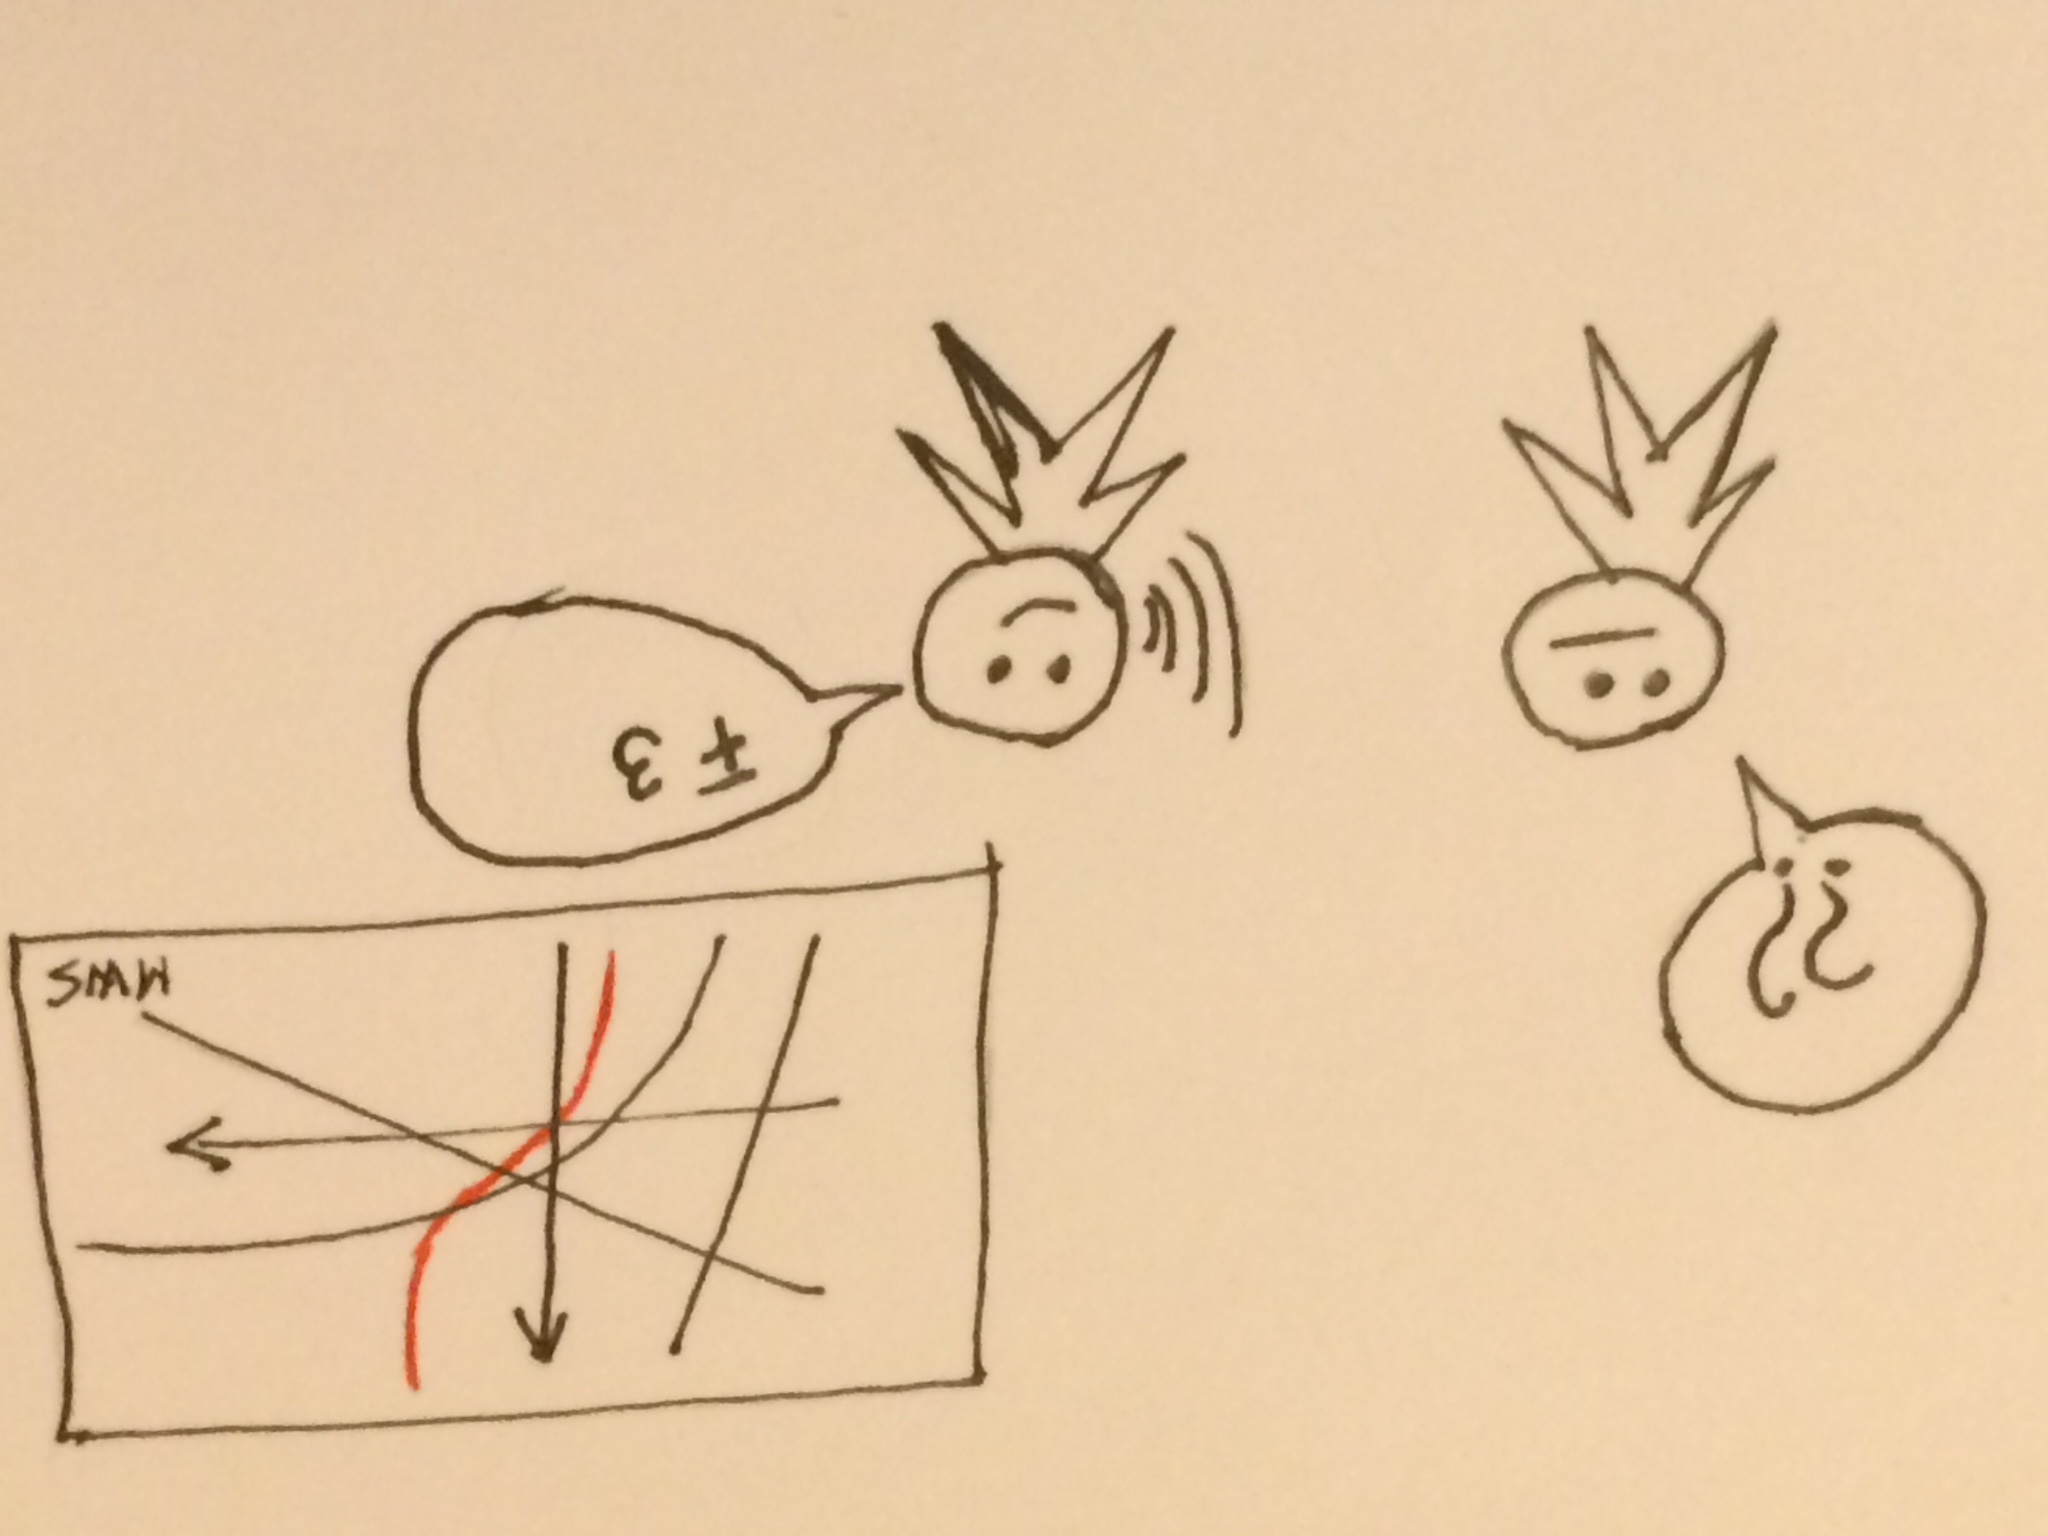 MWS
??
F 3